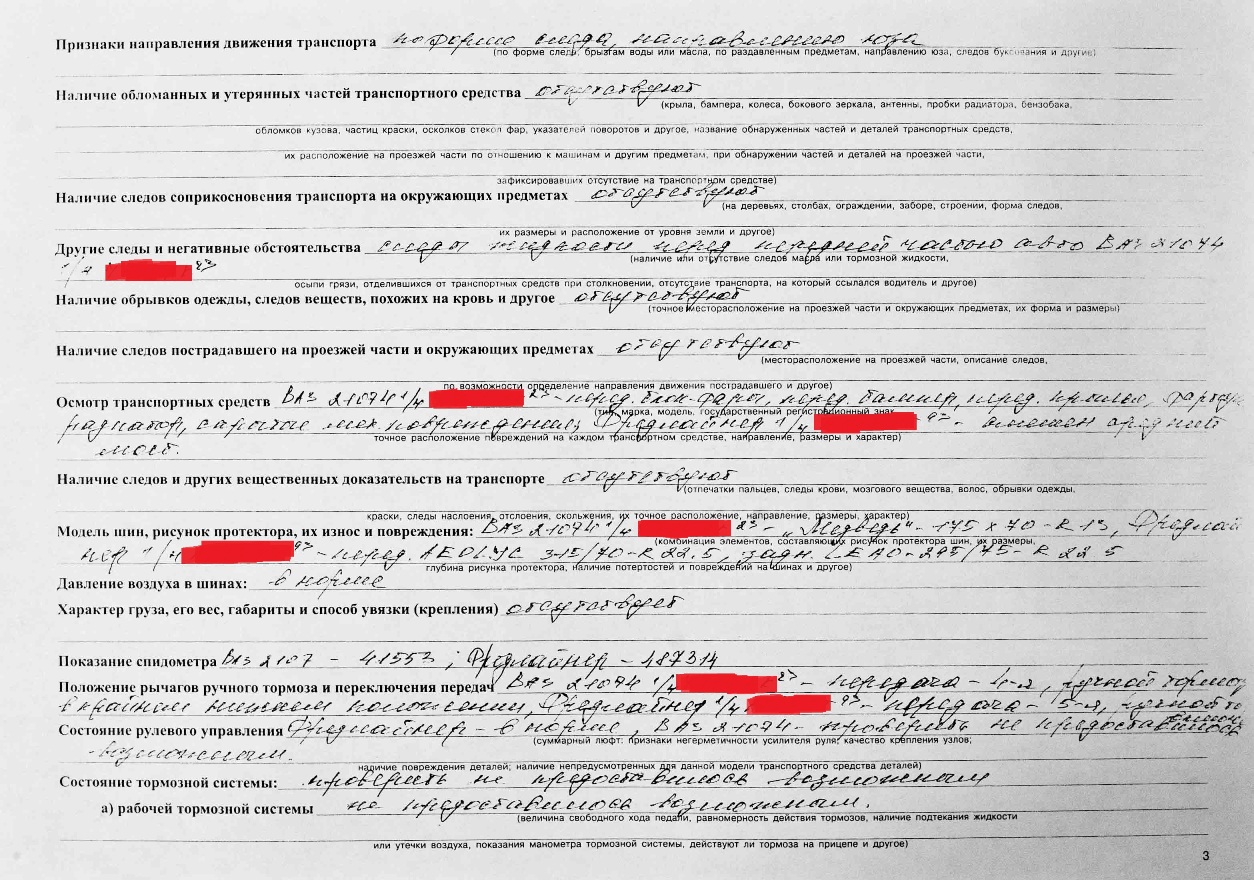 Признаки направления движения транспорта по форме следа, направлению юза
(по форме следа, брызгам воды или масла, по раздавленным предметам, направлению юза, следов буксования и другие)
Наличие обломанных и утерянных частей транспортного средства отсутствуют
(крыла, бампера, колеса, бокового зеркала, антенны, пробки радиатора, бензобака,
обломков кузова, частиц краски, осколков стекол фар, указателей поворотов и другое, название обнаруженных частей и деталей транспортных средств,
их расположение на проезжей части по отношению к машинам и другим предметам, при обнаружении частей и деталей на проезжей части,
зафиксировавших отсутствие на транспортном средстве)
Наличие следов соприкосновения транспорта на окружающих предметах отсутствуют
(на деревьях, столбах, ограждении, заборе, строении, форма следов,
их размеры и расположение от уровня земли и другое)
Другие следы и негативные обстоятельства следы жидкости перед передней частью авто ВАЗ 21074
(наличие или отсутствие следов масла или тормозной жидкости,
г/н 23
осыпи грязи, отделившихся от транспортных средств при столкновении, отсутствие транспорта, на который ссылался водитель и другое)
Наличие обрывков одежды, следов веществ, похожих на кровь и другое отсутствуют
(точное месторасположение на проезжей части и окружающих предметах, их форма и размеры)
Наличие следов пострадавшего на проезжей части и окружающих предметах отсутствуют
(месторасположение на проезжей части, описание следов,
по возможности определение направления движения пострадавшего и другое)
Осмотр транспортных средств ВАЗ 21074 г/н 23 - перед. блок-фары, перед. бампер, перед. крылья,
(тип, марка, модель, государственный регистрационный знак,
радиатор, скрытые мех. повреждения; Фредлайнер г/н 93 -
точное расположение повреждений на каждом транспортном средстве, направление, размеры и характер)
мост.
Наличие следов и других вещественных доказательств на транспорте отсутствуют
(отпечатки пальцев, следы крови, мозгового вещества, волос, обрывки одежды,
краски, следы наслоения, отслоения, скольжения, их точное расположение, направление, размеры, характер)
Модель шин, рисунок протектора, их износ и повреждения: ВАЗ 21074 г/н 23 - "Медведь" - 175 х 70 - R 13, Фредлай
(комбинация элементов, составляющих рисунок протектора шин, их размеры,
нер г/н 93 - перед. AEOLУС 315/70-R 22.5, задн. LEAO-295/75-R 22 5
глубина рисунка протектора, наличие потертостей и повреждений на шинах и другое)
Давление воздуха в шинах: в норме
Характер груза, его вес, габариты и способ увязки (крепления) отсутствует
Показание спидометра ВАЗ 2107 - 41553 ; Фредлайнер - 487314
Положение рычагов ручного тормоза и переключения передач ВАЗ 21074 г/н 23 - передача - 4-я, ручной тормоз
в крайнем нижнем положении, Фредлайнер г/н 93 - передача - 5-я, ручной то
Состояние рулевого управления Фредлайнер - в норме, ВАЗ 21074 - проверить не предоставилось
(суммарный люфт: признаки негерметичности усилителя руля; качество крепления узлов;
возможным.
наличие повреждения деталей; наличие непредусмотренных для данной модели транспортного средства деталей)
Состояние тормозной системы: проверить не предоставилось возможным
а) рабочей тормозной системы не предоставилось возможным.
(величина свободного хода педали, равномерность действия тормозов, наличие подтекания жидкости
или утечки воздуха, показания манометра тормозной системы, действуют ли тормоза на прицепе и другое)
3